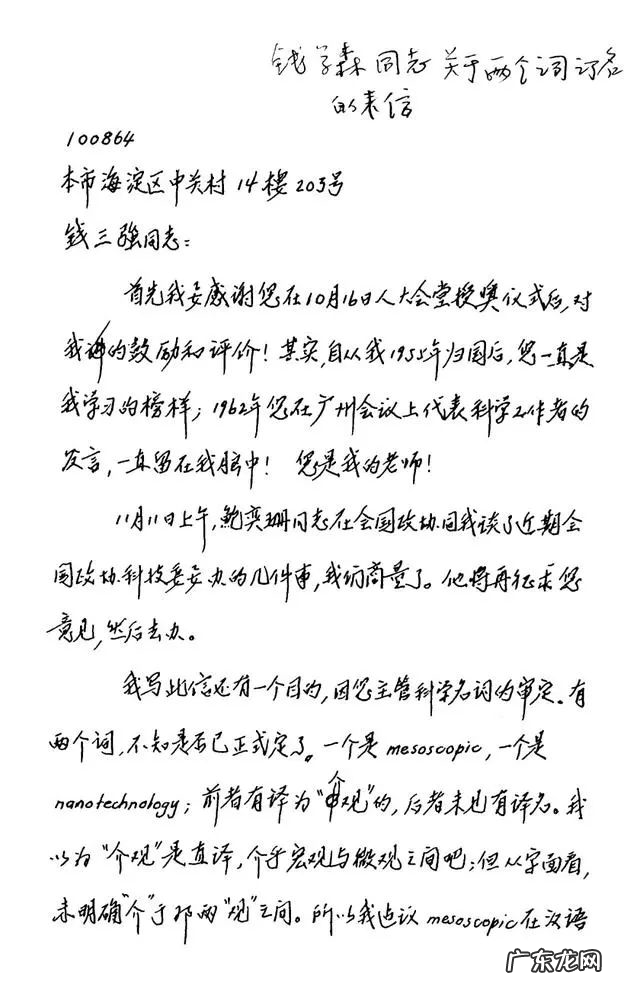 钱学森同志关于两个词订名
的来信
100864
本市海淀区中关村14楼203号
钱三强同志：
首先我要感谢您在10月16日人大会堂授奖仪式后，对
我的鼓励和评价！其实，自从我1955年归国后，您一直是
我学习的榜样；1962年您在广州会议上代表科学工作者的
发言，一直留在我脑中！您是我的老师！
11月11日上午，鲍奕珊同志在全国政协同我谈了近期全
国政协科技委要办的几件事，我们商量了。他将再征求您
意见，然后去办。
我写此信还有一个目的，因您主管科学名词的审定。有
两个词，不知是否已正式定了。一个是mesoscopic，一个是
nanotechnology；前者有译为“介观”的，后者未也有译名。我
以为“介观”是直译，介乎宏观与微观之间吧；但从字面看，
未明确“介”于那两“观”之间。所以我建议mesoscopic在汉语
广东龙网